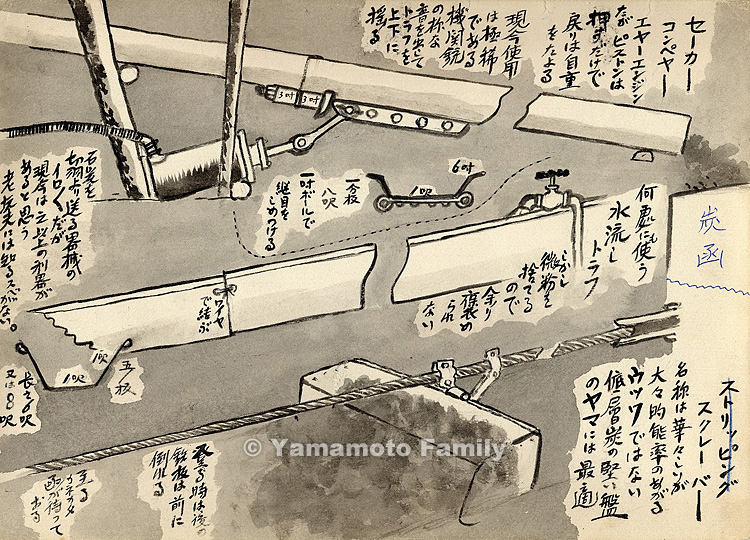 セーカー
コンペヤー
エヤーエンジン
だがピストンは
押すだけで
戻りは自重
をたよる
現今使用
は極稀
である
機関銃
の様な
音を出して
トラフを
上下に
揺る
3吋
3吋
石炭を
切羽より送る器械の
イロくだが
現今は之以上の利器が
あると思う
老坑夫には知るスベがない。
6吋
1呎
一分板
八呎
一吋ボールで
継目を
しめつける
何處にも使う
水流し
トラフ
しかし
微粉を
捨てる
ので
余り
褒め
られ
ない
炭函
ワイヤ
で結ぶ
1呎
1呎
五分板
長さ6呎
又は8呎
ストリッピング
スクレーバー
名称は華々しいが
大々的能率のあがる
ウツワではない
低層炭の堅い盤
のヤマには最適
登る時は後の
鉄板は前に
倒れる
函が待って
おる
© Yamamoto Family